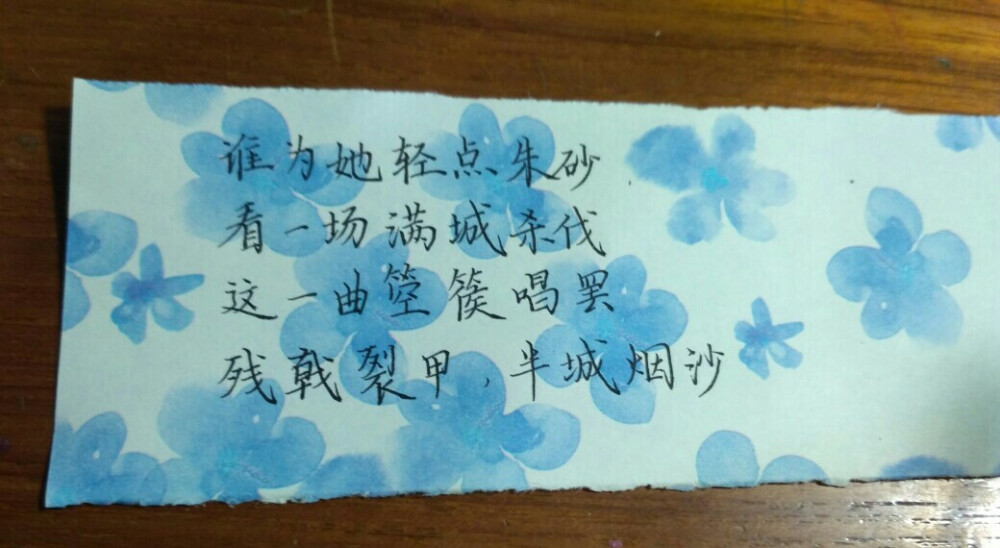 谁为她轻点朱砂
看一场满城杀伐
这一曲箜篌唱罢
残戟裂甲,半城烟沙